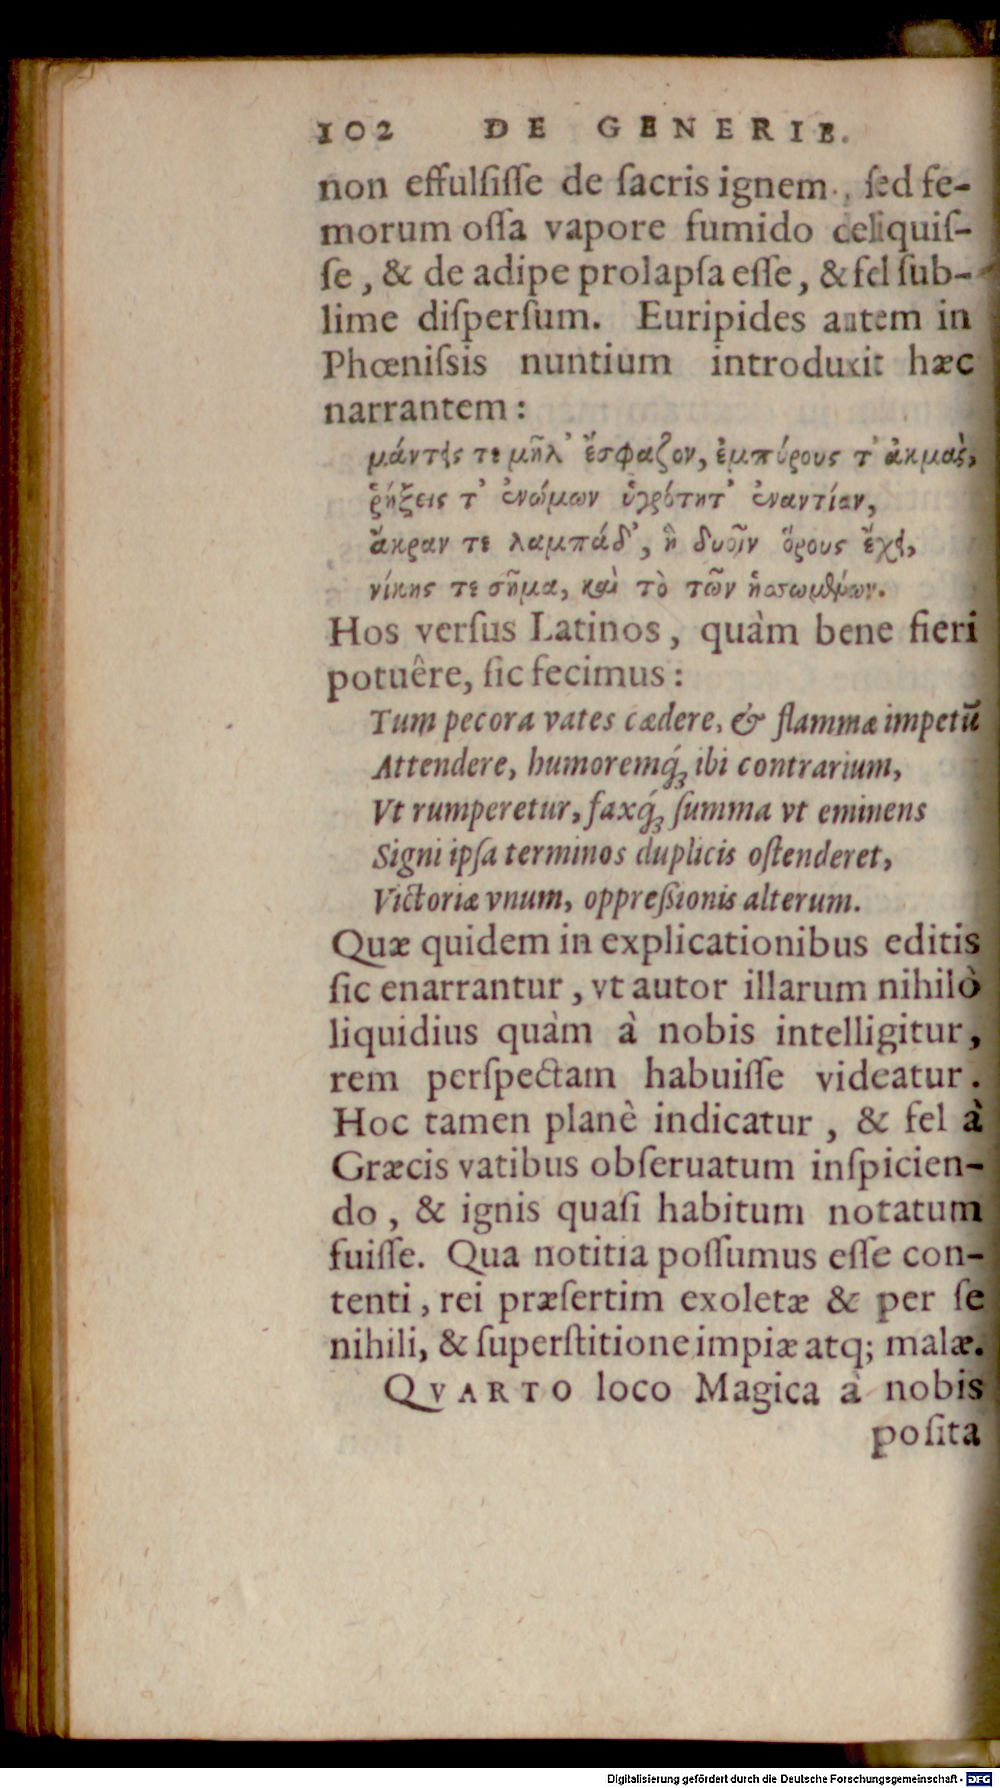 102 DE GENERIB.
non effulſiſſe de ſacris ignem, ſed fe-
morum oſſa vapore fumido celiquiſ-
ſe, & de adipe prolapſa eſſe, & fel ſub-
lime diſperſum. Euripides autem in
Phœniſsis nuntium introduxit hæc
narrantem:
μάντεις τε μῆλ᾽ ἔσφαζον, ἐμπύρους τ᾽ ἀκμὰς,
ῥήξεις τ᾽ ἐνώμων ὑγρότητ᾽ ἐναντίαν,
ἄκραν τε λαμπάδ᾽, ἣ δυοῖν ὅρους ἔχει,
νίκης τε σῆμα, καὶ τὸ τῶν ἡσσωμένων.
Hos verſus Latinos, quàm bene fieri
potuêre, ſic fecimus:
Tum pecora vates cædere, & flammæ impetū
Attendere, humoremq́; ibi contrarium,
Vt rumperetur, faxq́; ſumma vt eminens
Signi ipſa terminos duplicis oſtenderet,
Victoriæ vnum, oppreſsionis alterum.
Quæ quidem in explicationibus editis
ſic enarrantur, vt autor illarum nihilò
liquidius quàm à nobis intelligitur,
rem perſpectam habuiſſe videatur.
Hoc tamen planè indicatur, & fel à
Græcis vatibus obſeruatum inſpicien-
do, & ignis quaſi habitum notatum
fuiſſe. Qua notitia poſſumus eſſe con-
tenti, rei præſertim exoletæ & per ſe
nihili, & ſuperſtitione impiæ atq; malæ.
QVARTO loco Magica à nobis
poſita
Digitalisierung gefördert durch die Deutsche Forschungsgemeinschaft - DFG